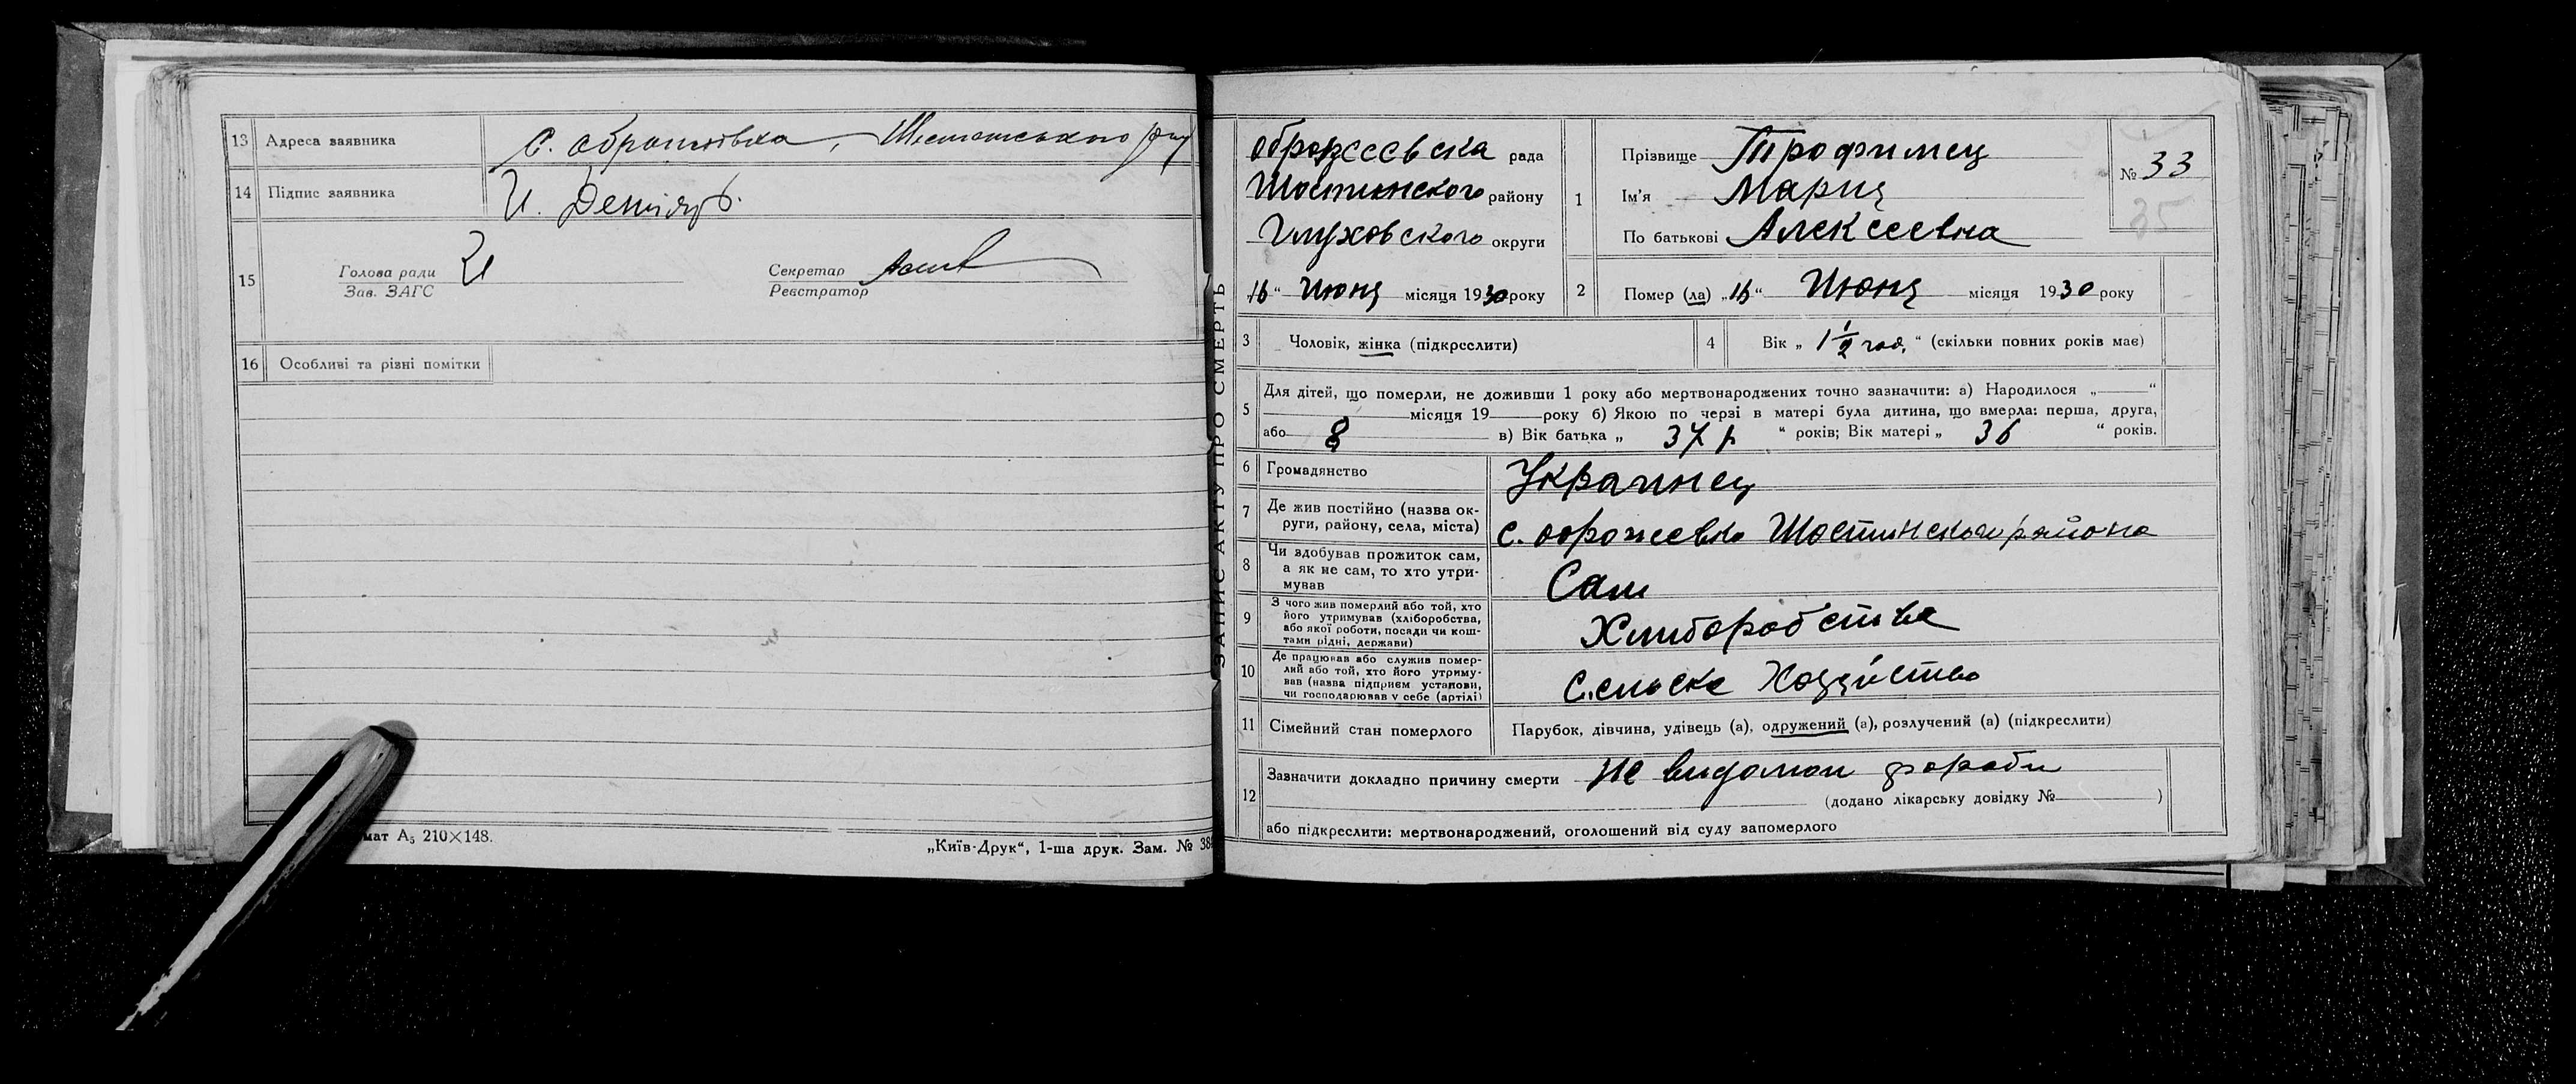 13 Адреса заявника с. Обратѣевка, Шостенського
14 Підпис заявника И.
15 Голова ради
Зав. ЗАГС
Секретар
Реєстратор
16 Особливі та різні помітки
мат А₅ 210×148.
„Київ-Друк“, 1-ша друк. Зам. № 38
ЗАПИС АКТУ ПРО СМЕРТЬ
рада
Шостинского району
Глуховского округи
„16“ Июня місяця 1930 року
1 Прізвище Трофимец
Ім'я Мария
По батькові Алексеевна
№ 33
35
2 Помер (ла) „16“ Июня місяця 1930 року
3 Чоловік, жінка (підкреслити)
4 Вік „ 1 1/2 год. “ (скільки повних років має)
5 Для дітей, що померли, не доживши 1 року або мертвонароджених точно зазначити: а) Народилося „ “
місяця 19 року б) Якою по черзі в матері була дитина, що вмерла: перша, друга,
або 8 в) Вік батька „ 37 р “ років; Вік матері „ 36 “ років.
6 Громадянство Украинец
7 Де жив постійно (назва округи, району, села, міста) с. Шостинского района
8 Чи здобував прожиток сам, а як не сам, то хто утримував Сам
9 З чого жив померлий або той, хто його утримував (хліборобства, або якої роботи, посади чи коштами рідні, держави) Хлиборобства
10 Де працював або служив померлий або той, хто його утримував (назва підприєм установи, чи господарював у себе (артілі) Сельске Хозяйство
11 Сімейний стан померлого Парубок, дівчина, удівець (а), одружений (а), розлучений (а) (підкреслити)
12 Зазначити докладно причину смерти Не видомои хороби
(додано лікарську довідку № )
або підкреслити: мертвонароджений, оголошений від суду запомерлого